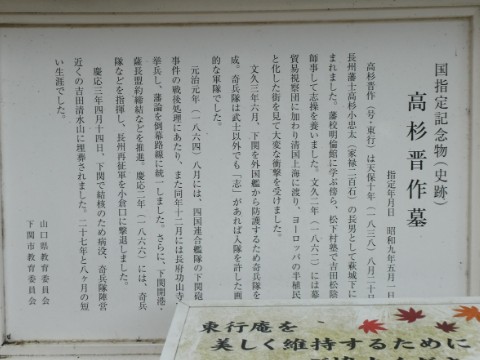 国指定記念物(史跡)
高杉晋作墓
指定年月日 昭和九年五月一日
高杉晋作(号・東行)は天保十年(一八三九)八月二十日
長州藩士高杉小忠太(家禄二百石)の長男として萩城下に
まれました。藩校明倫館に学ぶ傍ら、松下村塾で吉田松陰
師事して志操を養いました。文久二年(一八六二)には幕
貿易視察団に加わり清国上海に渡り、ヨーロッパの半植民
と化した街を見て大変な衝撃を受けました。
文久三年六月、下関を外国艦から防護するため奇兵隊を
成。奇兵隊は武士以外でも「志」があれば入隊を許した画
的な軍隊でした。
元治元年(一八六四)八月には、四国連合艦隊の下関砲
事件の戦後処理にあたり、また同年十二月には長府功山寺
挙兵し、藩論を倒幕路線に統一しました。さらに、下関開港・
薩長盟約締結などを推進。慶応二年(一八六六)には、奇兵
隊などを指揮し、長州再征軍を小倉口に撃退しました。
慶応三年四月十四日、下関で結核のため病没、奇兵隊陣営
近くの吉田清水山に埋葬されました。二十七年と八ヶ月の短
い生涯でした。
山口県教育委員会
下関市教育委員会
東行庵を
美しく維持するために